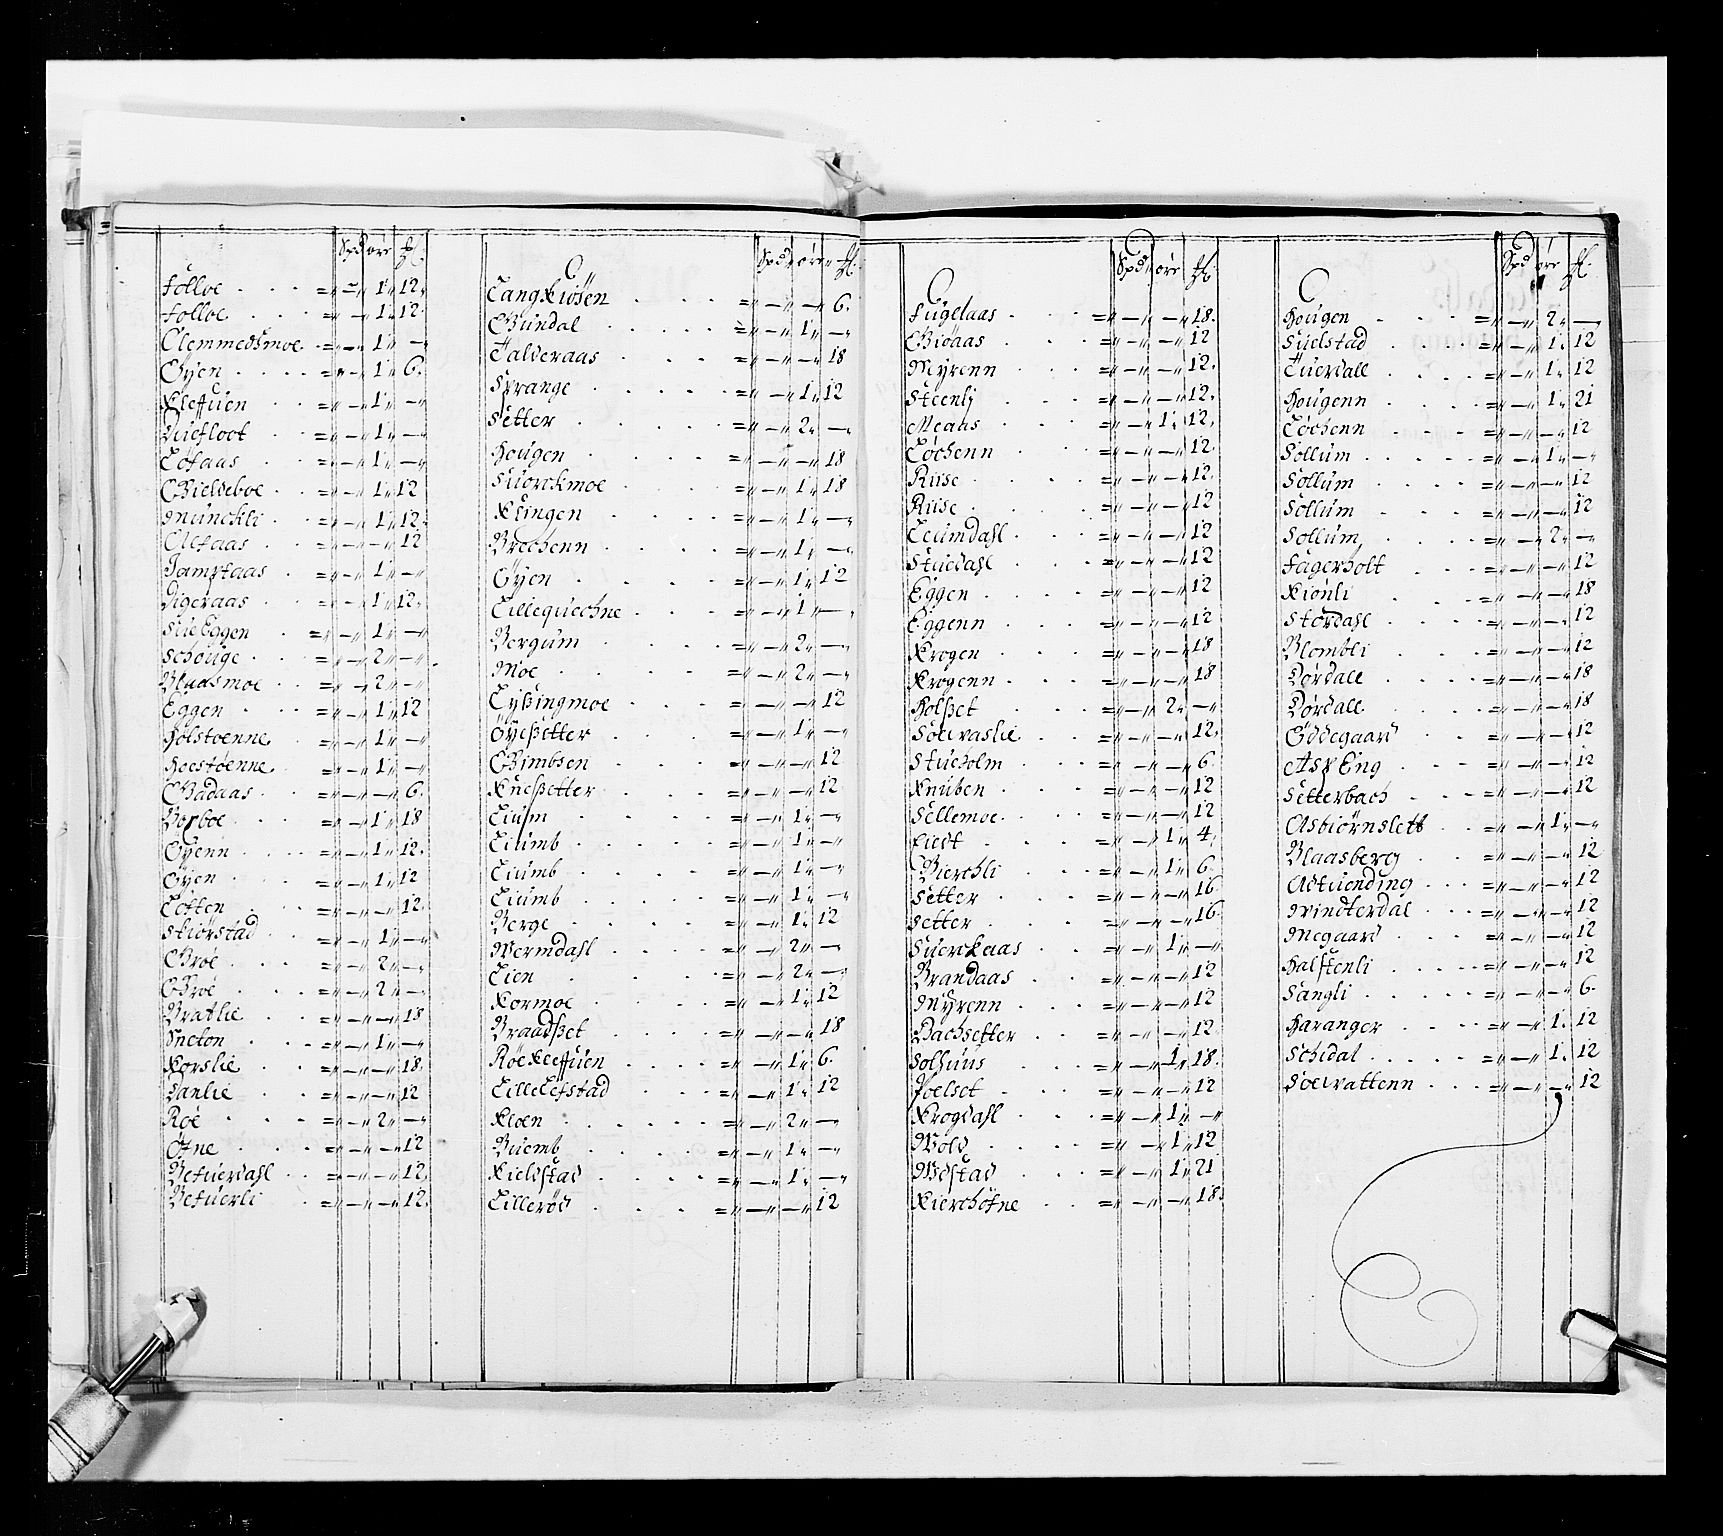 Spd øre
Folloe = — 1 12
Folloe = — 1 12
Clemmedsmoe = — 1 —
Öyen = — 1 6
Kleffuen = — 1 —
= — 1 —
Löfaas = — 1 —
Gieldeboe = — 1 12
Munckli = — 1 12
Alfaas = — — 12
Jampfaas = — 1 —
Digeraas = — 1 12
= — 1 —
Schouge = — 2 —
Bladsmoe = — 2 —
Eggen = — 1 12
Holstoenne = — 1 —
Hoestöenne = — 1 —
Gadaas = — — 6
Borboe = — 1 18
Öyenn = — 1 12
Öyen = — 1 12
Lotten = — — 12
Stiörstad = — 1 —
Groe = — 2 —
Groe = — 2 —
Bratlie = — — 18
Sneton = — 1 —
Korslie = — — 18
Danlie = — — 12
Roe = — 2 —
Öfne = — — 12
Betuerdahl = — — 12
Betuerli = — — 12
Spd øre
Langkiösen = — — 6
Gundal = — 1 —
Talderaas = — — 18
Skrange = — 1 12
Setter = — 2 —
Hougen = — — 18
Suorckmoe = — 1 18
Klingen = — 1 —
Brechenn = — 1 —
Öyen = — 1 12
Lillequechne = — 1 —
Bergum = — 2 —
Moe = — 2 —
Lyßingmoe = — — 12
Öyeßetter = — 1 —
Grimbsen = — — 12
Kneßetter = — — 12
Lium = — 1 —
Liumb = — 1 —
Liumb = — 1 —
Liumb = — 1 —
Berge = — 1 12
Wermdahl = — 2 —
Lien = — 2 —
Kormoe = — 1 12
Braadßet = — — 18
Röekleffuen = — 1 6
Lille Lefstad = — 1 12
Kloen = — 2 —
Buemb = — 1 —
Kieldstad = — 1 —
Lilleröd = — — 12
Spd øre
Fuglaas = — — 18
Gioaas = — — 12
Meyrenn = — — 12
Steenli = — — 12
Meaas = — 1 12
Löchenn = — — 12
Riise = — — 12
Riise = — — 12
Leumdahl = — — 12
Stuedahl = — — 12
Eggen = — — 12
Eggenn = — — 12
Krogen = — — 18
Krogenn = — — 18
Holßet = — 2 —
Soluaslie = — — 12
Stueholm = — — 6
Knuben = — — 12
Sellemoe = — — 12
Fiedt = — 1 4
Bierchli = — 1 6
Setter = — — 16
Setter = — — 16
Suerkaas = — 1 —
Brandaas = — — 12
Myrenn = — — 12
Bachsetter = — — 12
Solhuus = — 1 18
Poelset = — — 12
Krogdahl = — 1 —
Wold = — 1 12
Wdstad = — 1 21
Kierchöfne = — — 18
Spd øre
Hougen = — 2 —
Suelstad = — 1 12
Tuerdall = — 1 12
Hougenn = — 1 21
Löchenn = — — 12
Sollum = — 1 —
Sollum = — — 12
Sollum = — — 12
Sollum = — 2 —
Fagerholt = — — 12
Kiönli = — — 18
Stordahl = — — 12
Blombli = — — 12
Dørdall = — — 18
Dørdall = — — 18
Öddegaard = — — 12
Ask Eng = — — 12
Setterbach = — — 12
Asbiörnslett = — 1 —
Blaasberg = — — 12
Astuending = — — 12
Windterdal = — — 12
Megaard = — — 12
Halstenli = — — 12
Sangli = — — 6
Haranger = — 1 12
Schidal = — 1 12
Soelvattenn = — — 12